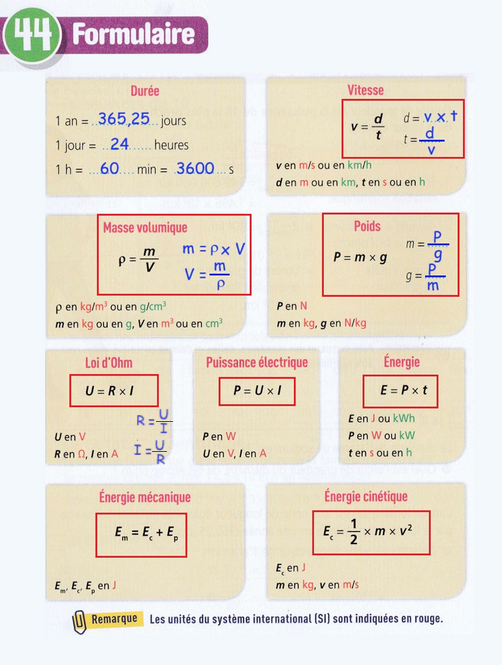 44 Formulaire
Durée
1 an = ..365,25.. jours
1 jour = ..24...... heures
1 h = ...60.... min = .3600... s
Vitesse
v = d/t
d = v x t
t = d/v
v en m/s ou en km/h
d en m ou en km, t en s ou en h
Masse volumique
ρ = m/V
m = ρ x V
V = m/ρ
ρ en kg/m³ ou en g/cm³
m en kg ou en g, V en m³ ou en cm³
Poids
P = m × g
m = P/g
g = P/m
P en N
m en kg, g en N/kg
Loi d'Ohm
U = R × I
R = U/I
I = U/R
U en V
R en Ω, I en A
Puissance électrique
P = U × I
P en W
U en V, I en A
Énergie
E = P × t
E en J ou kWh
P en W ou kW
t en s ou en h
Énergie mécanique
Em = Ec + Ep
Em, Ec, Ep en J
Énergie cinétique
Ec = 1/2 × m × v²
Ec en J
m en kg, v en m/s
Remarque Les unités du système international (SI) sont indiquées en rouge.